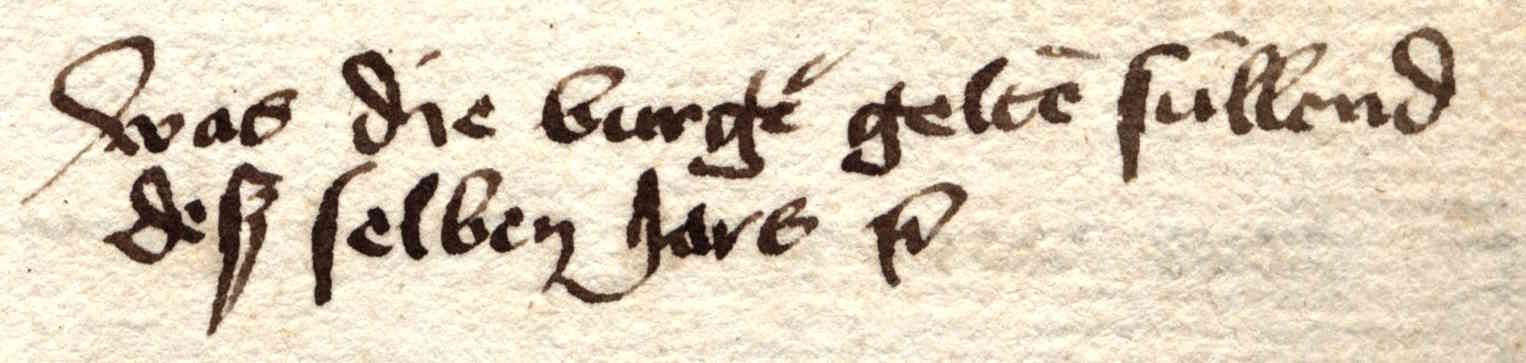 was die burgẽ geltẽ süllend
desz selben Jars